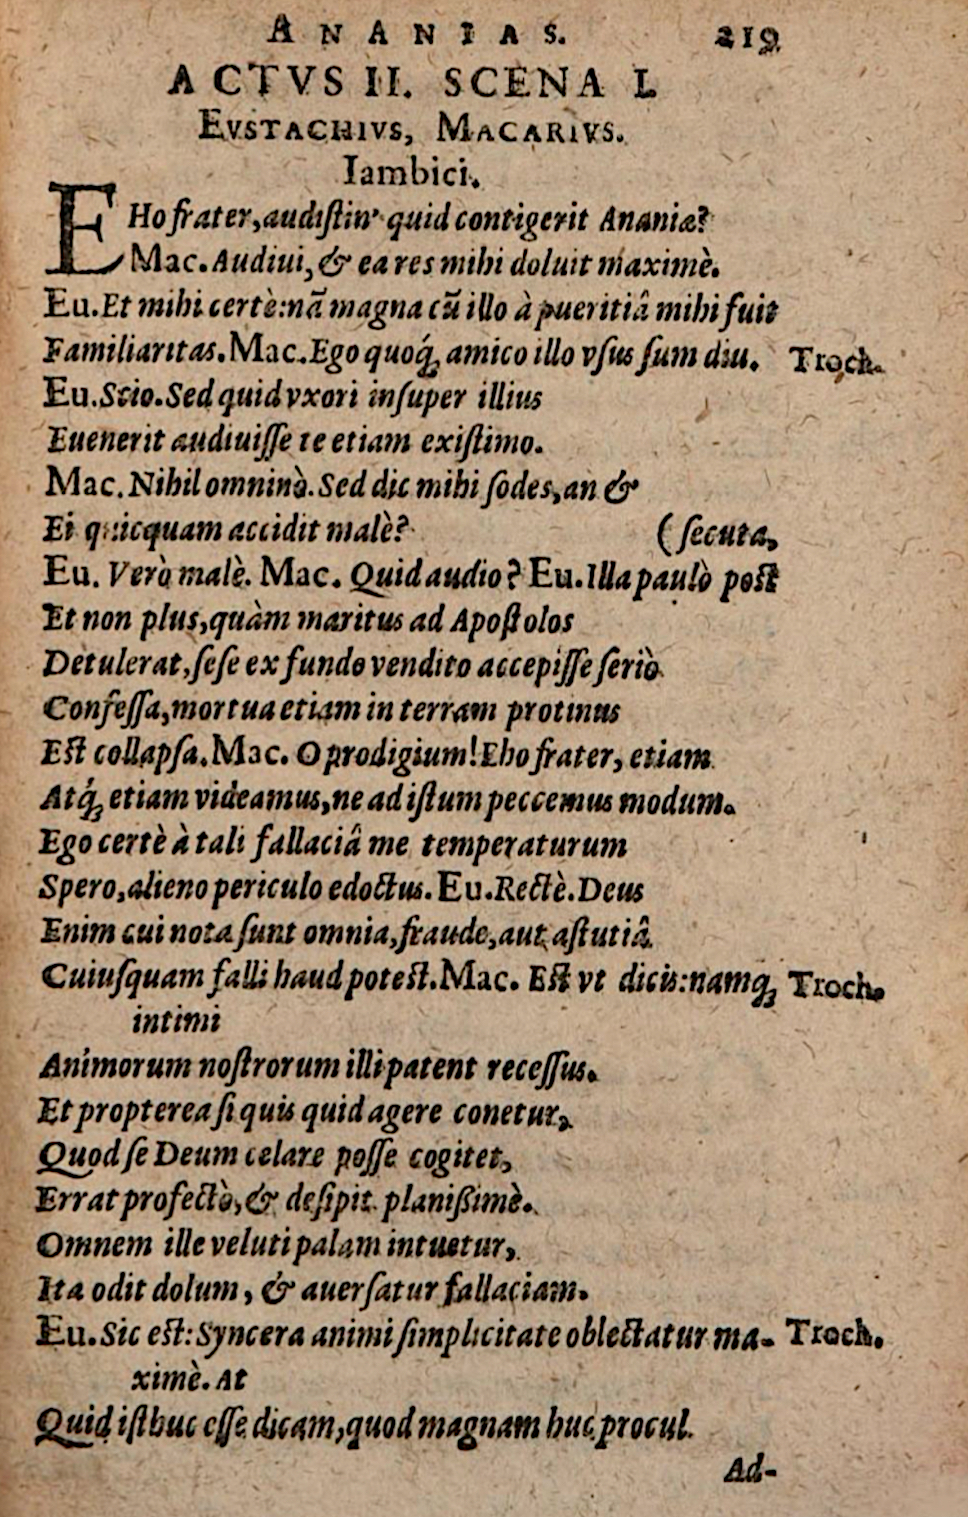 ANANIAS. 219
ACTVS II. SCENA I.
EVSTACHIVS, MACARIVS.
Iambici.
EHo frater, audiſtin' quid contigerit Ananiæ?
Mac. Audiui, & ea res mihi doluit maximè.
Eu. Et mihi certè: nã magna cũ illo à pueritiâ mihi fuit
Familiaritas. Mac. Ego quoq́; amico illo vſus ſum diu. Troch.
Eu. Scio. Sed quid vxori inſuper illius
Euenerit audiuiſſe te etiam exiſtimo.
Mac. Nihil omninò. Sed dic mihi ſodes, an &
Ei quicquam accidit malè? (ſecuta,
Eu. Verò malè. Mac. Quid audio? Eu. Illa paulò poſt
Et non plus, quàm maritus ad Apoſtolos
Detulerat, ſeſe ex fundo vendito accepiſſe ſeriò
Confeſſa, mortua etiam in terram protinus
Eſt collapſa. Mac. O prodigium! Eho frater, etiam
Atq́; etiam videamus, ne ad iſtum peccemus modum.
Ego certè à tali fallaciâ me temperaturum
Spero, alieno periculo edoctus. Eu. Rectè. Deus
Enim cui nota ſunt omnia, fraude, aut aſtutiâ
Cuiuſquam falli haud poteſt. Mac. Eſt vt dicis: namq; Troch.
intimi
Animorum noſtrorum illi patent receſſus.
Et propterea ſi quis quid agere conetur,
Quod ſe Deum celare poſſe cogitet,
Errat profectò, & deſipit planiſſimè.
Omnem ille veluti palam intuetur,
Ita odit dolum, & auerſatur fallaciam.
Eu. Sic eſt: Syncera animi ſimplicitate oblectatur ma- Troch.
ximè. At
Quid iſthuc eſſe dicam, quod magnam huc procul
Ad-